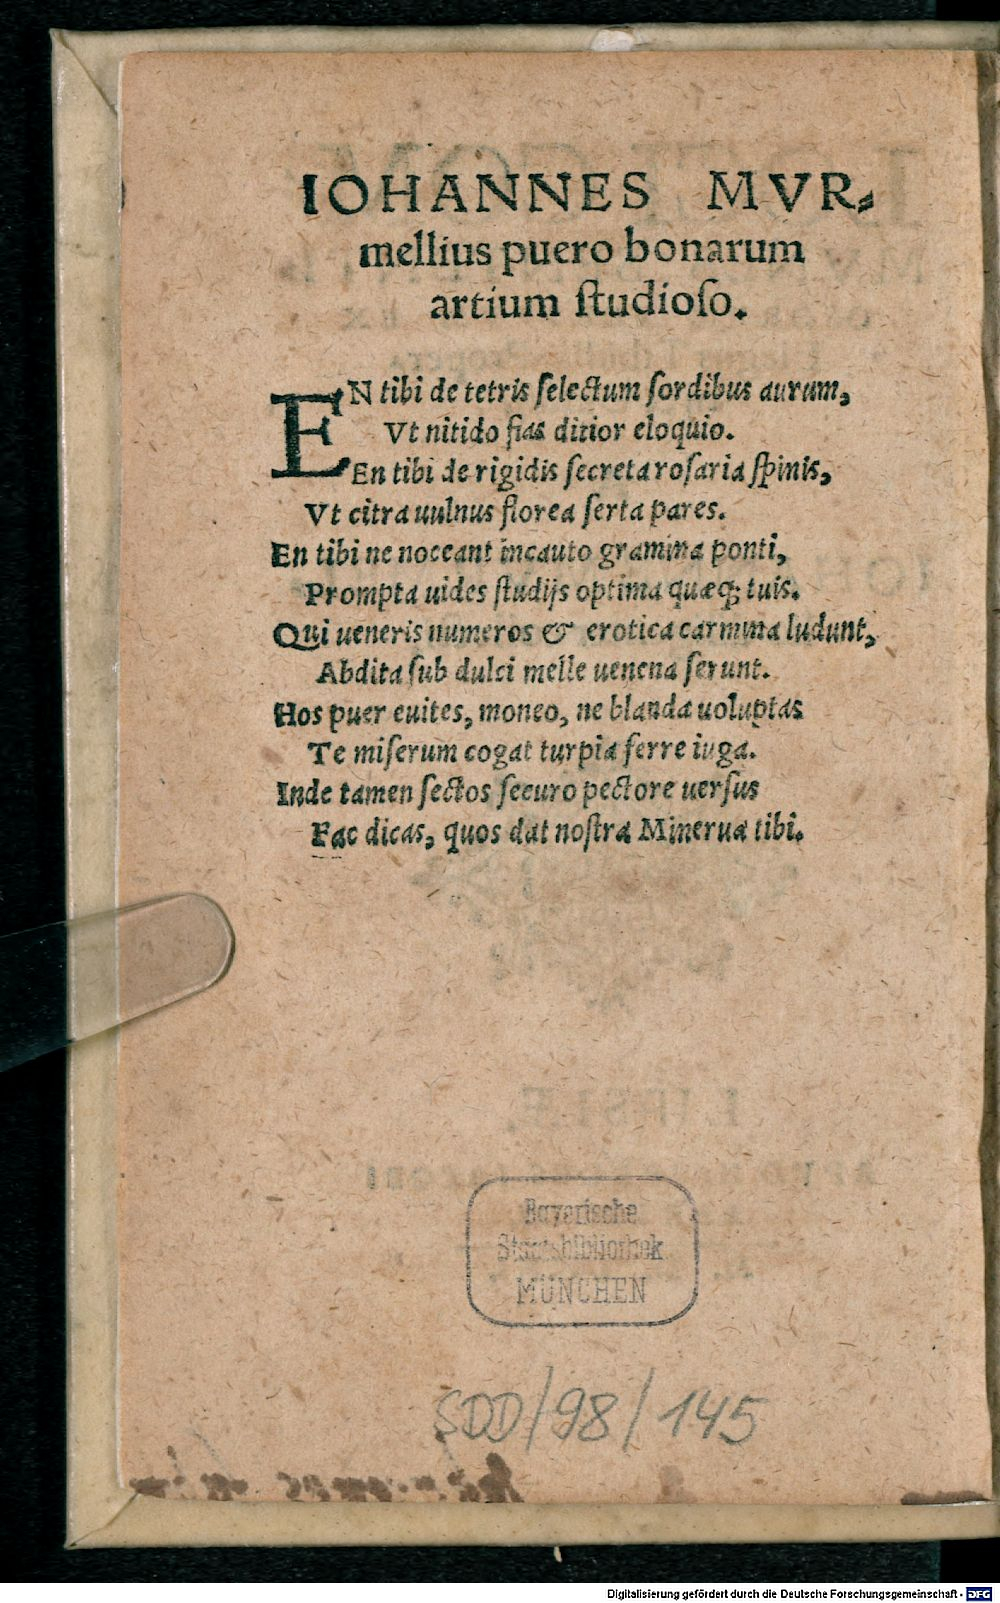 IOHANNES MVR⸗
mellius puero bonarum
artium ſtudioſo.
EN tibi de tetris ſelectum ſordibus aurum,
Vt nitido fias ditior eloquio.
En tibi de rigidis ſecreta roſaria ſpinis,
Vt citra uulnus florea ſerta pares.
En tibi ne noceant incauto gramina ponti,
Prompta uides ſtudijs optima quæq; tuis.
Qui ueneris numeros & erotica carmina ludunt,
Abdita ſub dulci melle uenena ſerunt.
Hos puer euites, moneo, ne blanda uoluptas
Te miſerum cogat turpia ferre iuga.
Inde tamen ſectos ſecuro pectore uerſus
Fac dicas, quos dat noſtra Minerua tibi.
Bayerische
Staatsbibliothek
MÜNCHEN
SDD/98/145
Digitalisierung gefördert durch die Deutsche Forschungsgemeinschaft - DFG